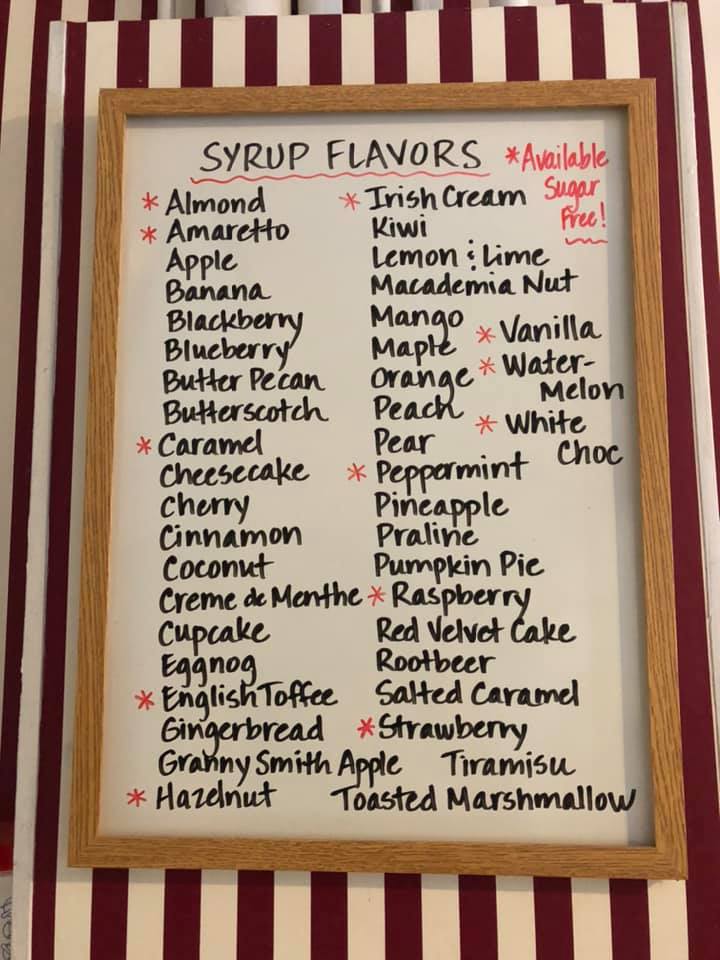 SYRUP FLAVORS
*Available
Sugar
Free!
* Almond
* Amaretto
Apple
Banana
Blackberry
Blueberry
Butter Pecan
Butterscotch
* Caramel
Cheesecake
Cherry
Cinnamon
Coconut
Creme de Menthe
Cupcake
Eggnog
* English Toffee
Gingerbread
Granny Smith Apple
* Hazelnut
* Irish Cream
Kiwi
Lemon & Lime
Macademia Nut
Mango
Maple
Orange
Peach
Pear
* Peppermint
Pineapple
Praline
Pumpkin Pie
* Raspberry
Red Velvet Cake
Rootbeer
Salted Caramel
* Strawberry
Tiramisu
Toasted Marshmallow
* Vanilla
* Water-
Melon
* White
Choc